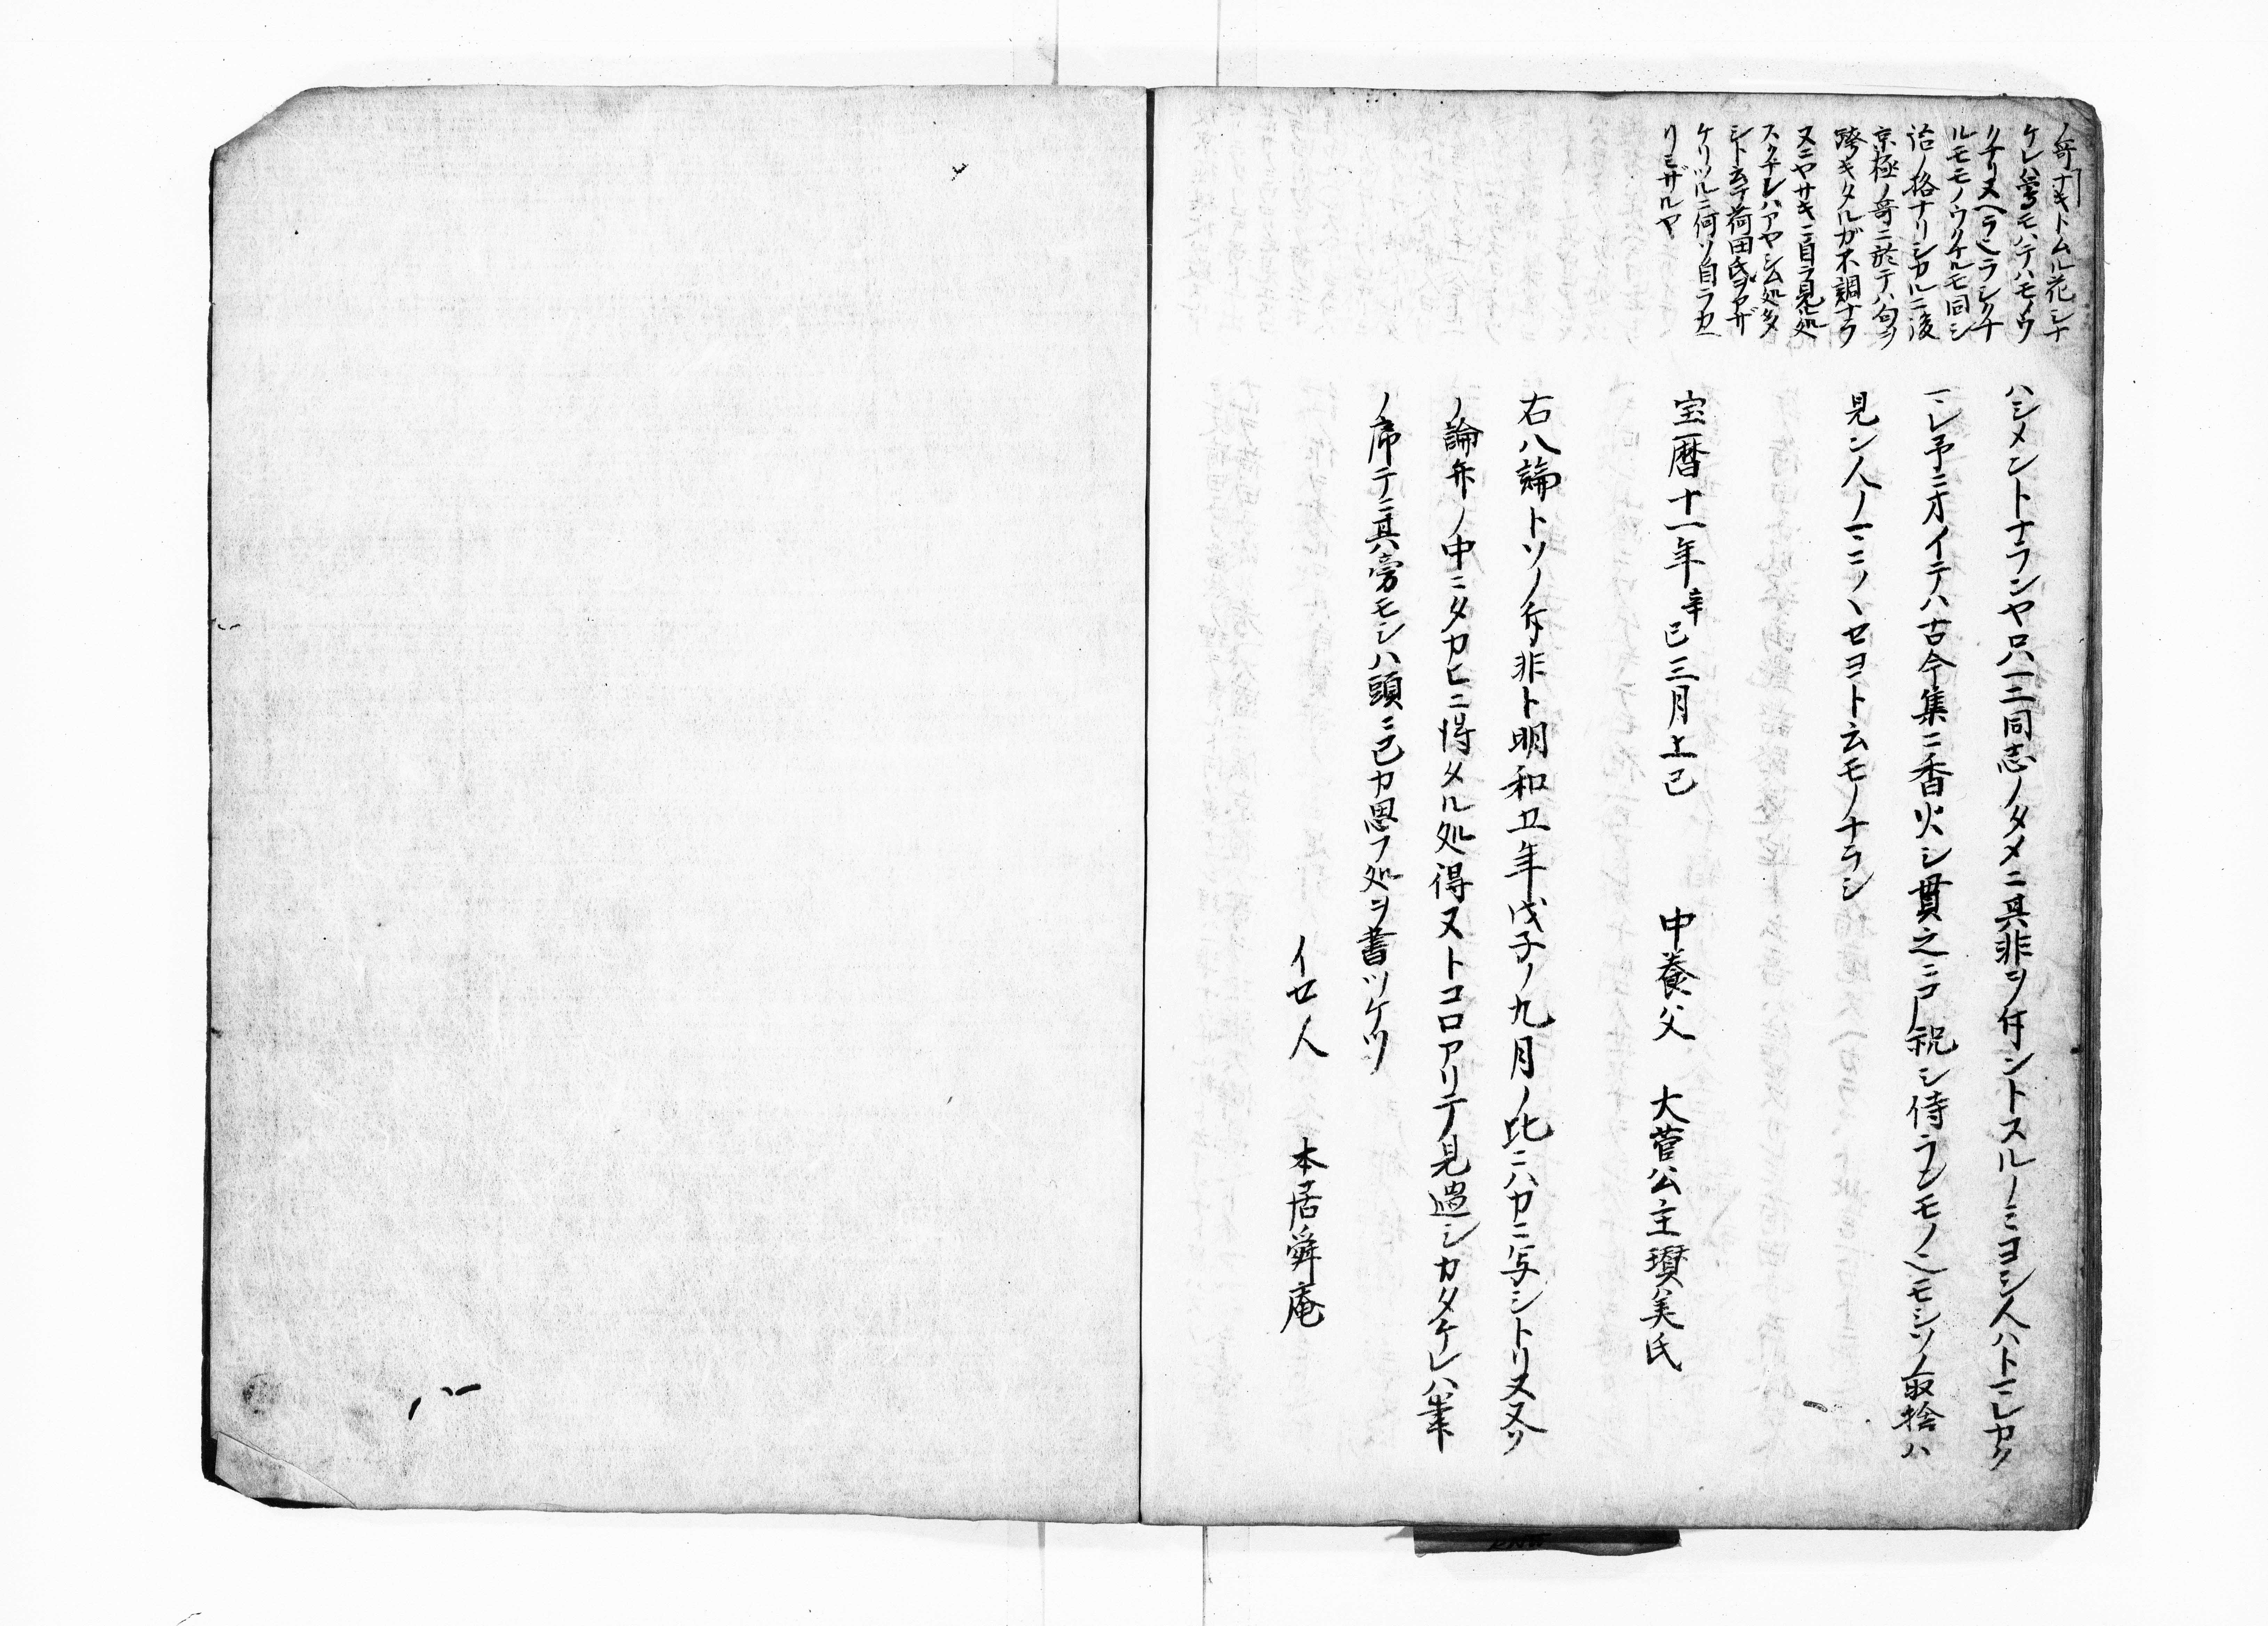 ノ哥ナキトムル花シナ
ケレハ鶯モハテハモノウ
クナリヌヘラ也ラシクナ
ルモモノウクケルモ同シ
治ノ格ナリシカルニ後
京極ノ哥ニ於テハ句ヲ
隣キタルガ不調ナラ
スニヤサキニ自ラ見ル処
スクナレハアヤシム処多
シト云テ荷田氏ヲアザ
ケリツルニ何ソ自ラカ
リミザルヤ
ハシメントナラシヤ只一二同志ノタメニ其非ヲ弁シトスルノミヨシ人ハトマレカク
マレ予ニオイテハ古今集ニ香火シ貫之ニコト祝シ侍ランモノ也モシソノ取捨ハ
見ン人ノマニ〳〵セヨト云モノナラシ
宝暦十一年辛巳三月上巳
中養父 大菅公圭瓚美氏
右八論トソノ斥非ト明和五年戊子ノ九月ノ比ニハカニ写シトリヌ又ソ
ノ論弁ノ中ニタカヒニ得タル処得ヌトコロアリテ見過シカタケレハ筆
ノ序テニ其旁モシハ頭ニ己カ思フ処ヲ書ツケツ
イセ人 本居舜庵